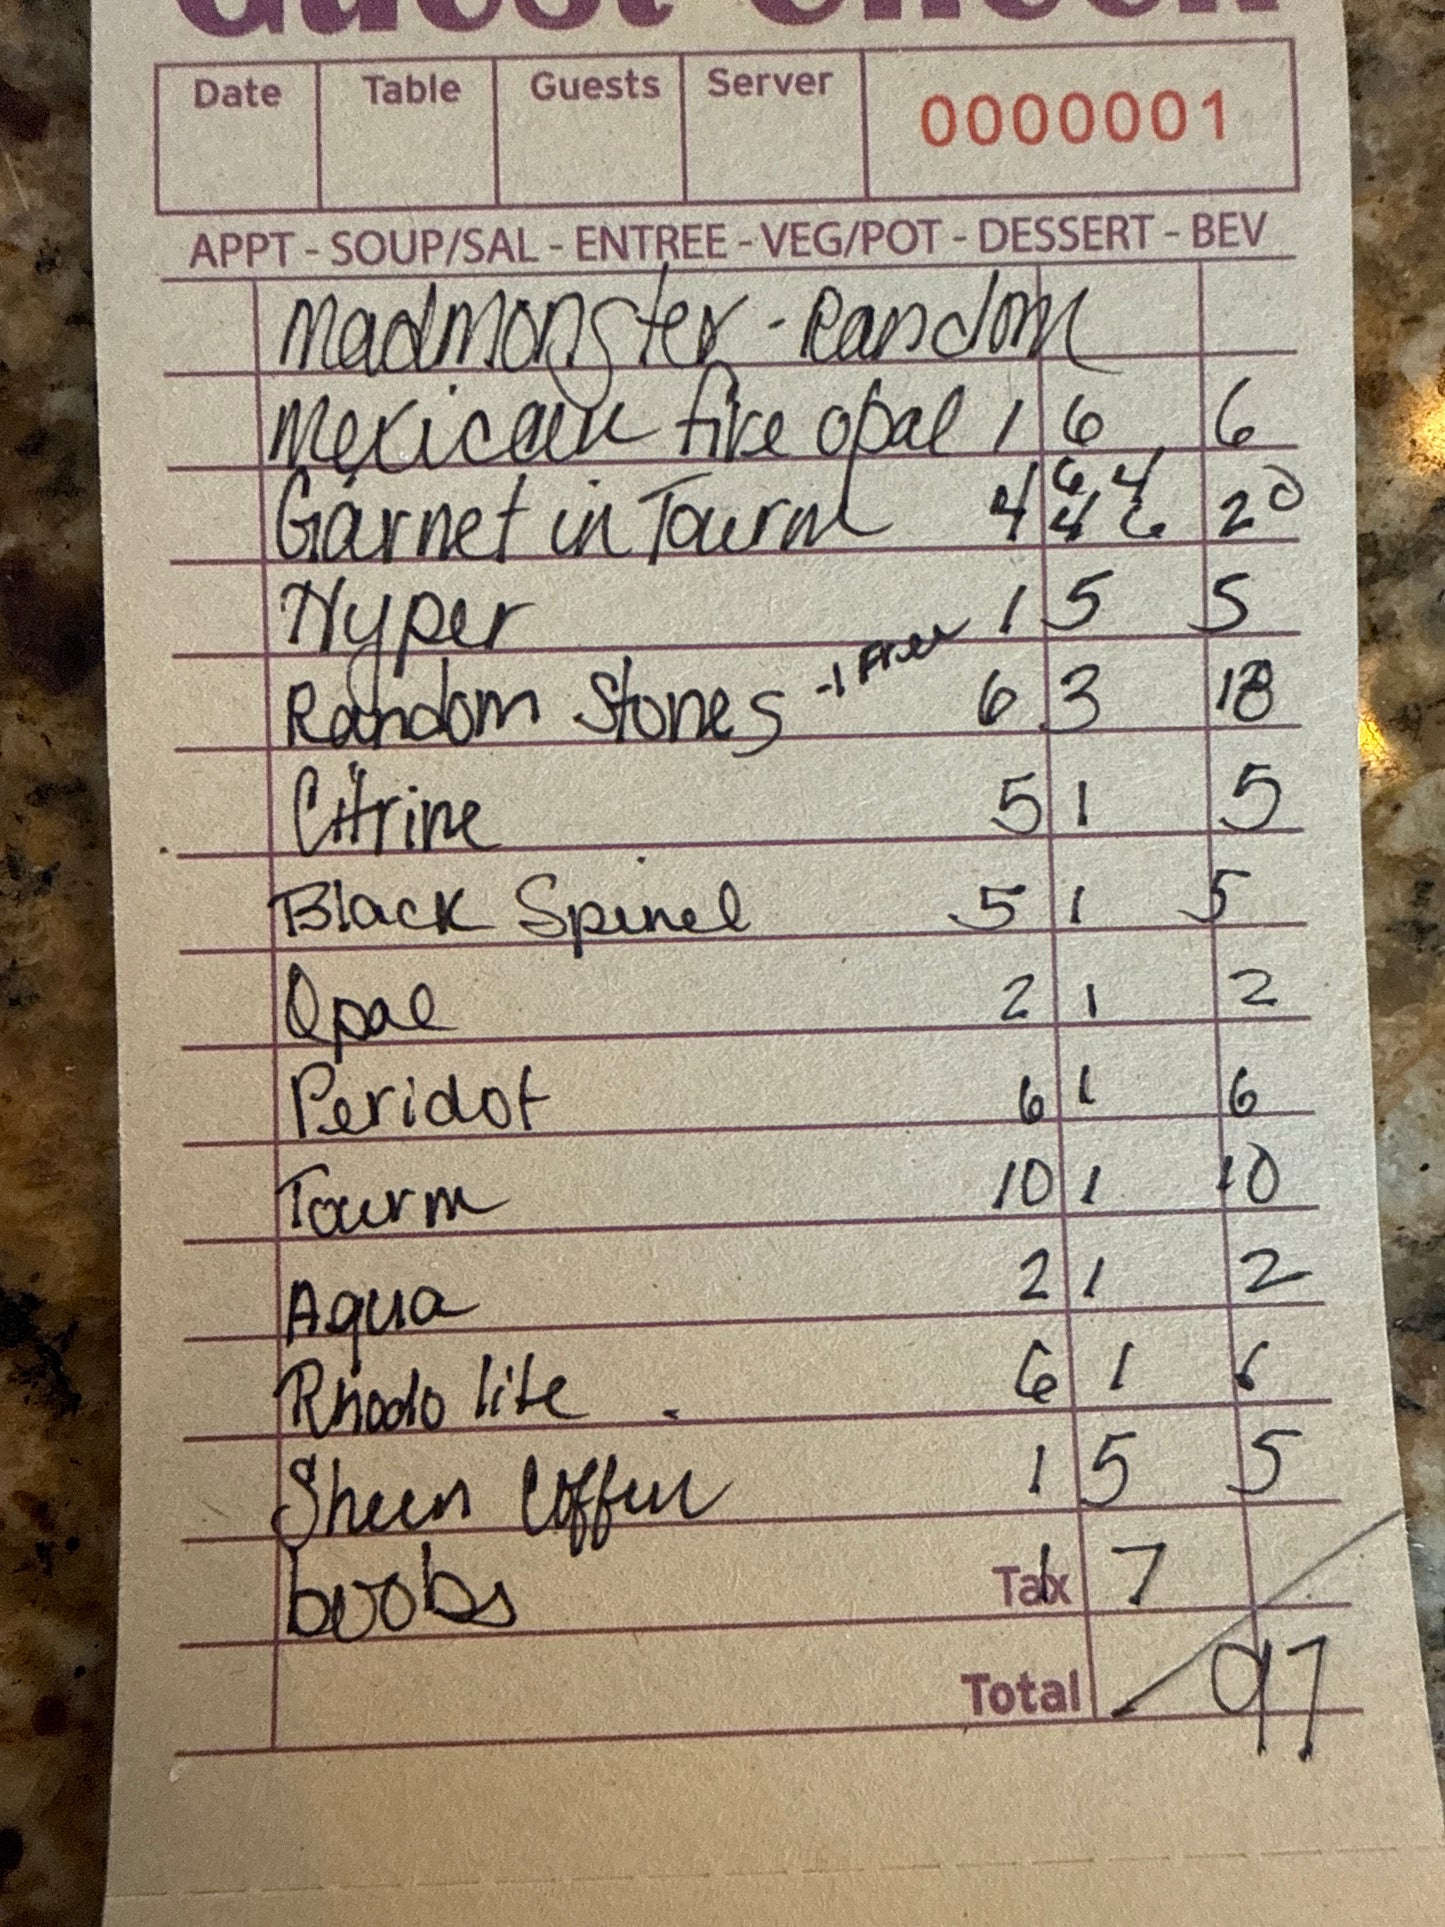 Guest Check
Date Table Guests Server 0000001
APPT - SOUP/SAL - ENTREE - VEG/POT - DESSERT - BEV
Madmonster - Random
Mexican fire opal 1 6 6
Garnet in Tourm 4 6 4 4 6 20
Hyper 1 5 5
Random Stones -1 Free 6 3 18
Citrine 5 1 5
Black Spinel 5 1 5
Opal 2 1 2
Peridot 6 1 6
Tourm 10 1 10
Aqua 2 1 2
Rhodolite 6 1 6
Sheen Coffin 1 5 5
boobs Tax 1 7
Total 97